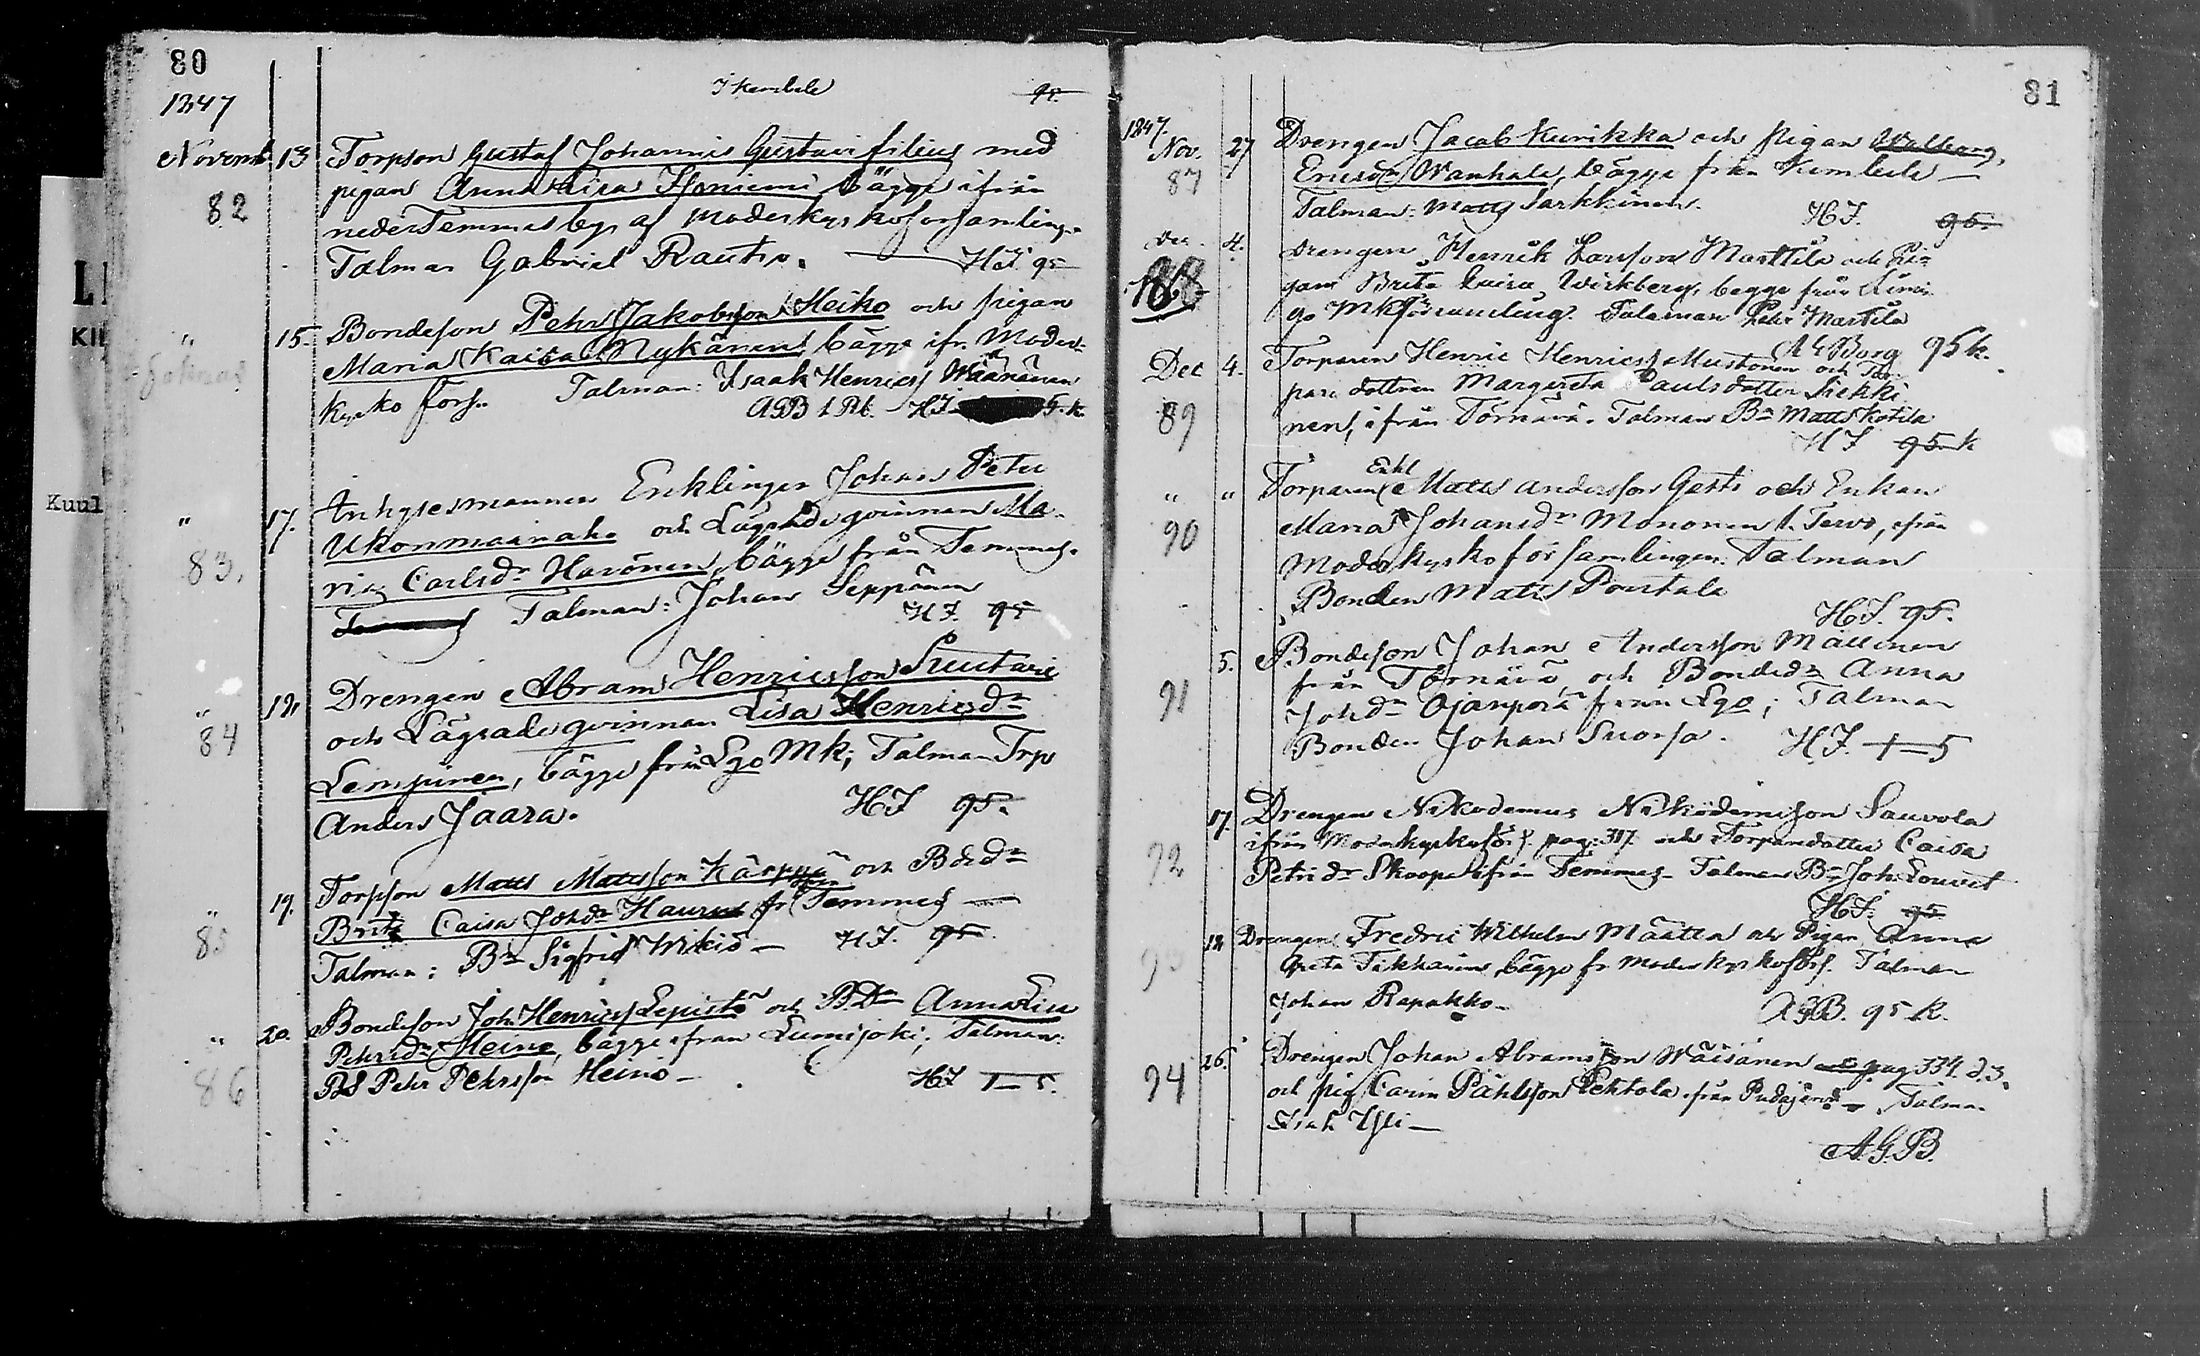 80
1847
I Kembele 95.
Novemb 13 Torpson Gustaf Johannis Gustavi filius med
82 pigan Anna Caisa Haniemi bägge ifrån
neder Temmes by af moderkyrkoförsamling.
Talman Gabriel Rautio. HF 95
" 15. Bondeson Pehr Jakobsson Heiko och pigan
Maria Kaisa Nykänen bägge ifr. Moder-
kyrko förs. Talman: Isaak Henricss Wäänänen
AGB 1 Rb. HF 5 k
" 17. Inhysesmannen Enklingen Johan Peter
83. Ukonmaanaho och Lägradeqvinnan Ma-
ria Carlsdr Havönen, bägge från Temmes.
Talman: Johan Seppänen
HF 95
" 18, Drengen Abram Henricsson Suutari
84 och Lägradeqvinnan Lisa Henricsdr
Lempinen, bägge från Lgo Mk; Talman Trp
Anders Jaara. HF 95.
" 19. Torpson Matts Mattsson Kärppä och Bdedr
85 Brita Caisa Johdr Haurus fr Temmes
Talman: Bn Sigfrid Wikiö HF. 95
" 20. Bondeson Joh. Henricss Lepistö och BDr Anna Lisa
86 Pehrsdr Heino, bägge ifrån Lumijoki; Talman:
BdS Pehr Pehrsson Heino HF 1-5.
Kuul
81
1847.
Nov. 27 Drengen Jacob Kurikka och pigan Walborg
87 Ericsdr Wanhala, bägge från Kembele
Talman: Matts Sarkkinen. HF. 95.
Dec. 4. Drengen Henrik Larsson Marttila och Pi-
88 gan Brita Caisa Wirkberg, begge från Limin
go Mkförsamling. Talaman Pehr Martila
AGBorg 95 k.
Dec 4. Torparen Henric Henricss Mustonen och Tor-
89 pare dottren Margareta Paulsdotter Siekki
nen, ifrån Törnävä. Talman Bn Matts Kotila
HF 95 k
" " Torparen Enkl Matts Andersson Gästi och Enkan
90 Maria Johansdr Mononen f. Tervo, ifrån
Moderkyrkoförsamlingen. Talman
Bonden Matts Pouttala
HF. 95.
5. Bondeson Johan Andersson Mällinen
91 från Törnävä och Bondedr Anna
Johdr Ojanperä från Lgo; Talman
Bonden Johan Suorsa. HF. 1-5
17. Drengen Nikodemus Nikodemisson Sauvola
92 ifrån Moderkyrkoförs. pag: 317. och Torparedotter Caisa
Petridr Skoopa ifrån Temmes. Talman Bn Joh. Louvet
HF: 95
18 Drengen Fredric Wilhelm Määtta och Pigan Anna
93 Greta Tikkanen, bägge fr Moderkyrkoförs. Talman
Johan Rapakko. AGB. 95 K.
26. Drengen Johan Abramsson Wäisänen pag 334. d. 3.
94 och pig Carin Påhlsson Lehtola, från Pudasjervi. Talman
Isak Ylli
A.G.B.